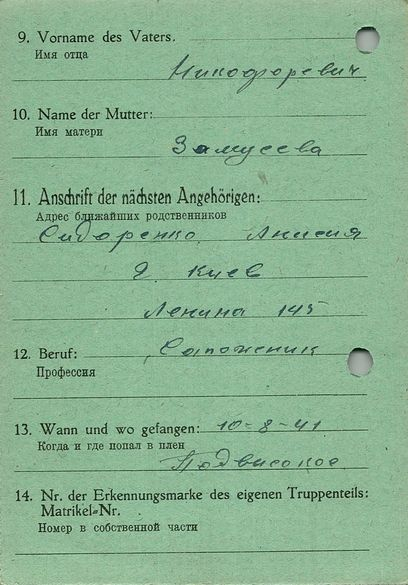 9. Vorname des Vaters.
Имя отца
Никофоревич
10. Name der Mutter:
Имя матери
Замусева
11. Anschrift der nächsten Angehörigen:
Адрес ближайших родственников
Сидоренко Анисия
г. Киев
Ленина 145
12. Beruf:
Сапоженик
Профессия
13. Wann und wo gefangen: 10-8-41
Когда и где попал в плен
Подвисокое
14. Nr. der Erkennungsmarke des eigenen Truppenteils:
Matrikel-Nr.
Номер в собственной части